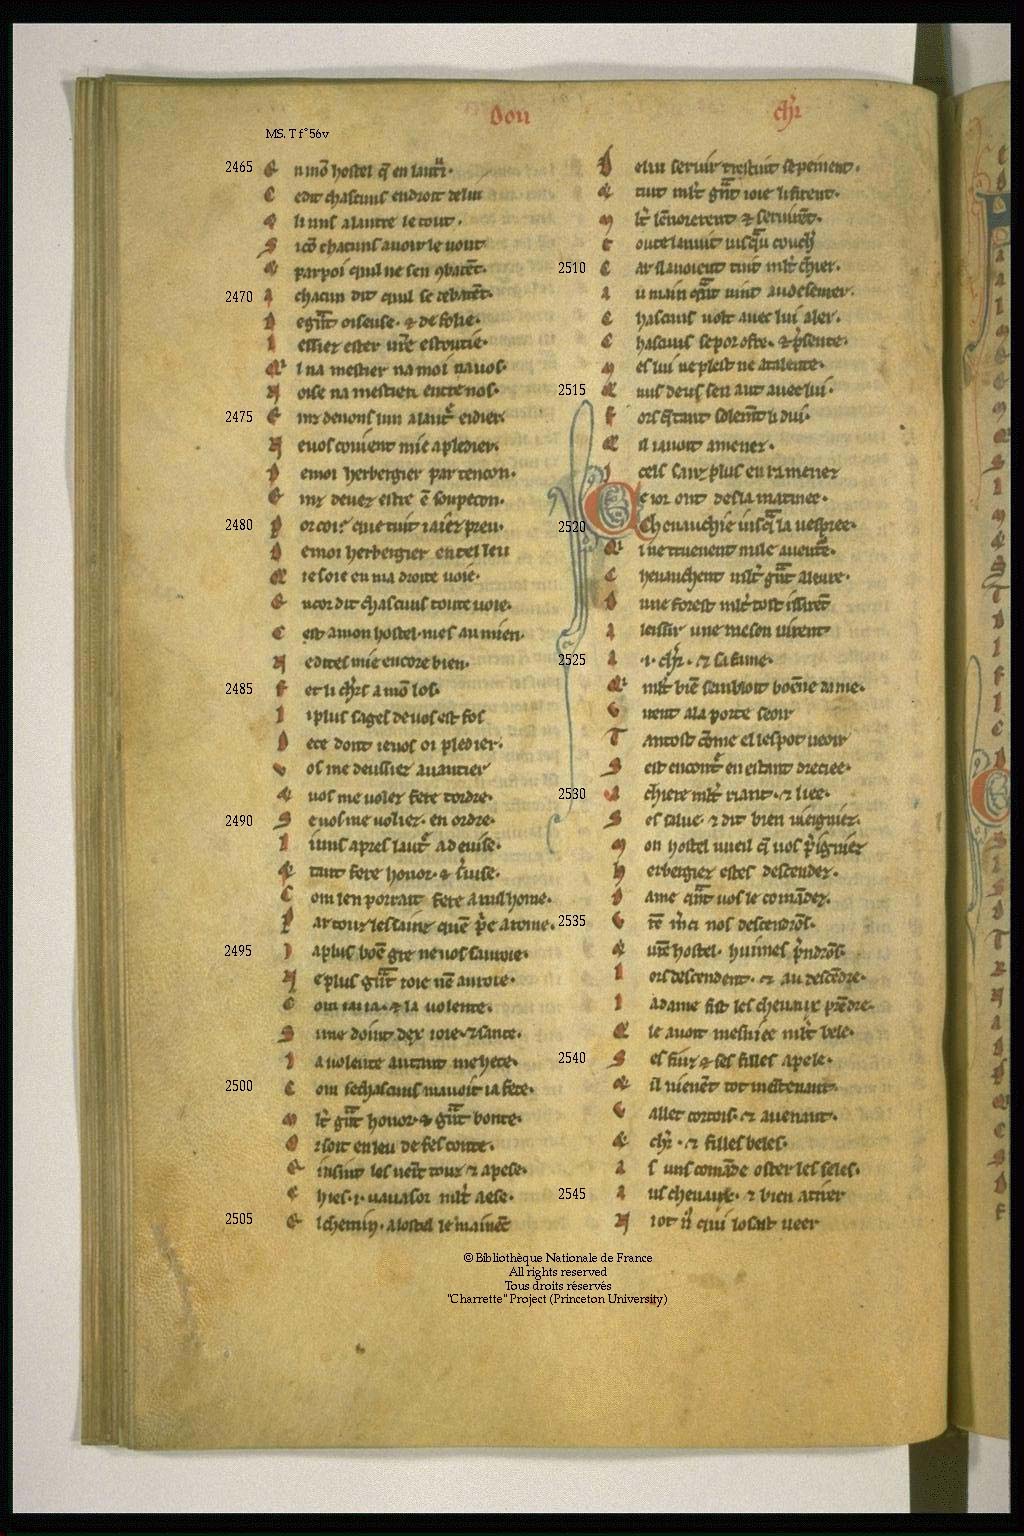 Dou chr̄
MS. T f°56v
2465 E n mō hostel q̄ en lautr̄i.
C edit chascuns endroit de lui
Q li uns a lautre le tout.
S icō chacuns auoir le uout
Q par poi quil ne sen 9batēt.
2470 A chacun dit quil se debatēt.
D e gn̄t oiseuse. & de folie.
L essiez ester urē estoutie.
Q̄ l na mestier na moi na uos.
N oise na mestier entre nos.
2475 E inz deuons lun a lautr̄ eidier
N e uos couient mie a pledier.
D e moi herbergier par tencon.
E inz deuez estre ē soupecon.
2480 P or coi? que tuit i aiez preu.
D e moi herbergier en tel leu
Q ie soie en ma droite uoie.
E ncor dit chascuns toute uoie.
C est a mon hostel. mes au mien.
N e dites mie encore bien.
2485 F et li chr̄s a mō los.
L i plus sages de uos est fos
D ece dont ie uos oi pledier.
V os me deussiez auantier
Q uos me uolez fere tordre.
2490 S e uos me uoliez. en ordre.
L i uns apres lautr̄ a deuise.
Q tant fere honor. & s̄uise.
C om len porrait fere a nul home.
P ar touz les sainz quen p̄e a rome.
2495 I a plus boē gre ne uos sauroie.
N e plus gn̄t ioie nē auroie.
C om iai ia. & la uolente.
S i me doint dex ioie. & sante.
L a uolente autant me hete.
2500 C om se chascuns mauoit ia fete.
M lt̄ gn̄t honor. & gn̄t bonte.
O r soit en leu de fes conte.
E insint los uēit touz & apese.
C hies .i. uauasor mlt̄ aese.
2505 E l chemin. a lostel le mainēt
D e lui seruir trestuit se peinent.
Q tuit mlt̄ gn̄t ioie li firent.
M lt̄ lēnorerent & seruirēt.
T oute la nuit iusqu couch̄
2510 C ar il auoient tuit mlt̄ ch̄ier.
A u main qn̄t uint au desseurer.
C hascuns uolt auec lui aler.
C hascuns se porofre. & p̄sente.
M es lui ne plest ne atalente.
2515 Q nus deus sen aut auec lui.
F ors q̄ tant solemt̄ li dui.
Q il i auoit amenez.
I ceis sanz plus en ra menez
C e ior ont des la matinee.
2520 Cheuauchie iusq̄ la uespree.
Q̄ l ne truuent nule auentē.
C heuauchent mlt̄ gn̄t aleure.
D une forest mlt̄ tost issirēt
A leissir une meson uirent
2525 A .i. chr̄. & sa fame.
Q̄ mlt̄ biē sembloit boēne dame.
V irent a la porte seoir
T antost cōme el les pot ueoir
S est encontr̄ en estant drecee.
2530 A chiere mlt̄ riant. & liee.
S es salue & dit bien uiegniez.
M on hostel uueil q̄ uos p̄igniez
H erbergiez estes descendez.
D ame qn̄t uos le comādez.
2535 V rē m̄ci nos descendrōs.
Q urē hostel. huimes p̄ndrōs.
L ors descendent. & au descēdre.
L a dame fist les cheuaux prēdre.
Q le auoit mesniee mlt̄ bele.
2540 S es fiuz & ses filles apele.
Q il uienēt tot maītenant.
V allet cortois. & auenant.
Q chr̄. & filles beles.
A s uns comāde oster les seles.
2545 A us cheuaux. & bien atirer
N i ot n̄l qui losast ueer
©Bibliothèque Nationale de France
All rights reserved
Tous droits réservés
"Charrette" Project (Princeton University)